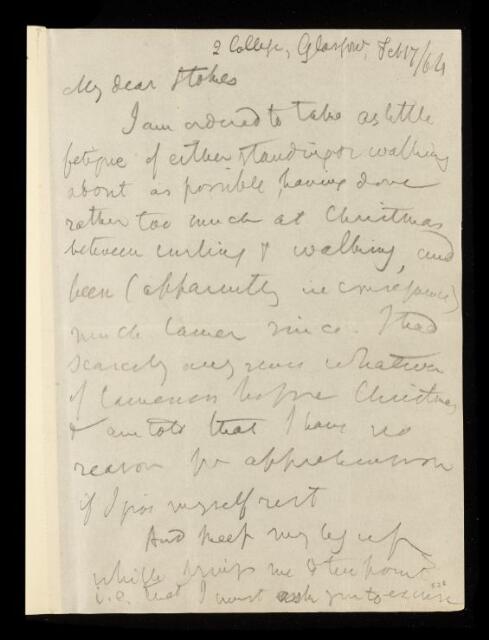 2 College, Glasgow, Feb 17/64
My dear Stokes
I am ordered to take as little
fatigue of either standing or walking
about as possible, having done
rather too much at Christmas
between curling & walking, and
been (apparently in consequence)
much lamer since. I had
scarcely any sense whatever
of lameness before Christmas
& am told that I have no
reason for apprehension
if I give myself rest
And keep my leg up
which brings me to the point
i.e. that I must ask you to excuse